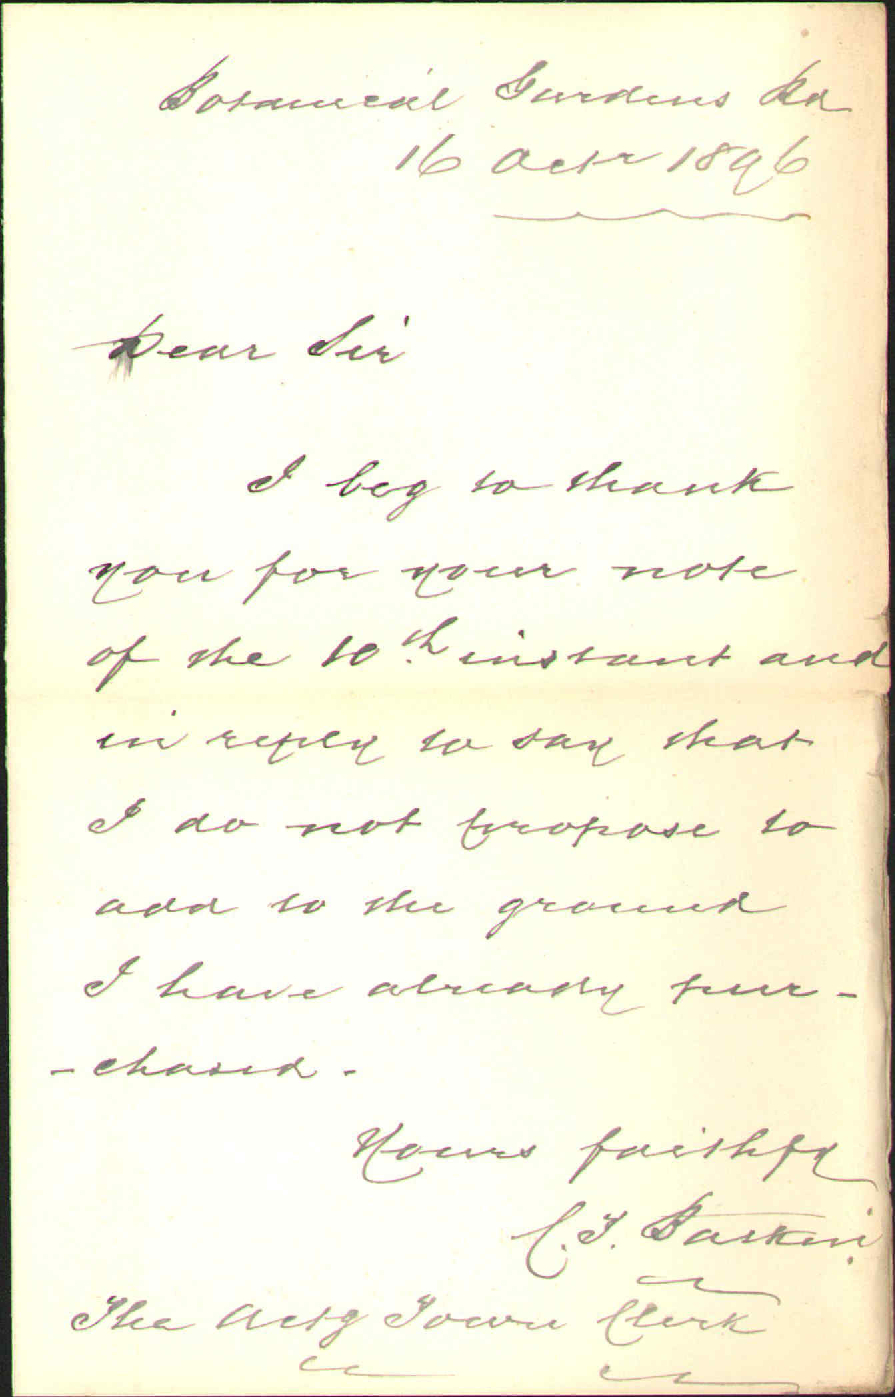 Botanical Gardens Rd
16 Octr 1896
Dear Sir
I beg to thank
you for your note
of the 10th instant and
in reply to say that
I do not propose to
add to the ground
I have already pur-
-chased.
Yours faithfy
C.T.
The Actg Town Clerk